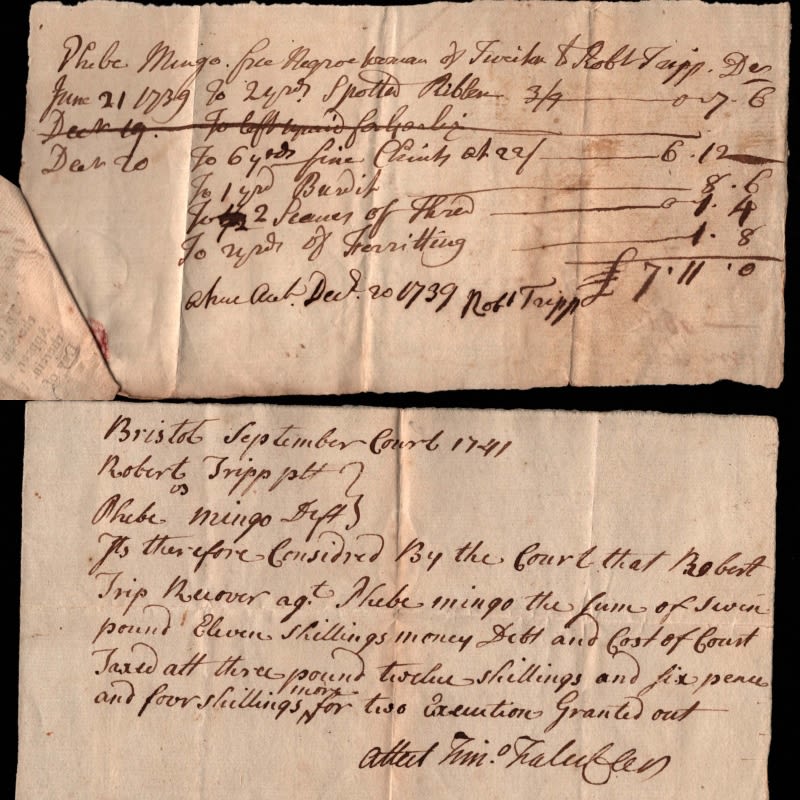 Phebe Mingo. free Negroe woman of Tiverton to Robt Tripp. Dr
June 21 1739 To 2 yrds Spotted Ribben 3/9 0 · 7 · 6
Decr 19. To
Decr 20 To 6 yrds fine Chints at 22/ 6 · 12
To 1 yrd 8 · 6
To 2 Scanes of Thred 0 1 · 4
To 2 yrds of Ferritting 1 · 8
£ 7 · 11 · 0
Decr. 20 1739 Robt Tripp
Bristol September Court 1741
Robert Tripp plt
vs
Phebe mingo Deft
Its therefore Considred By the Court that Robert
Trip Recover agt. Phebe mingo the sum of sivin
pound Eleven shillings money Debt and Cost of Court
Taxed att three pound twelve shillings and six pence
and four shillings more for two Execution Granted out
attest Timo